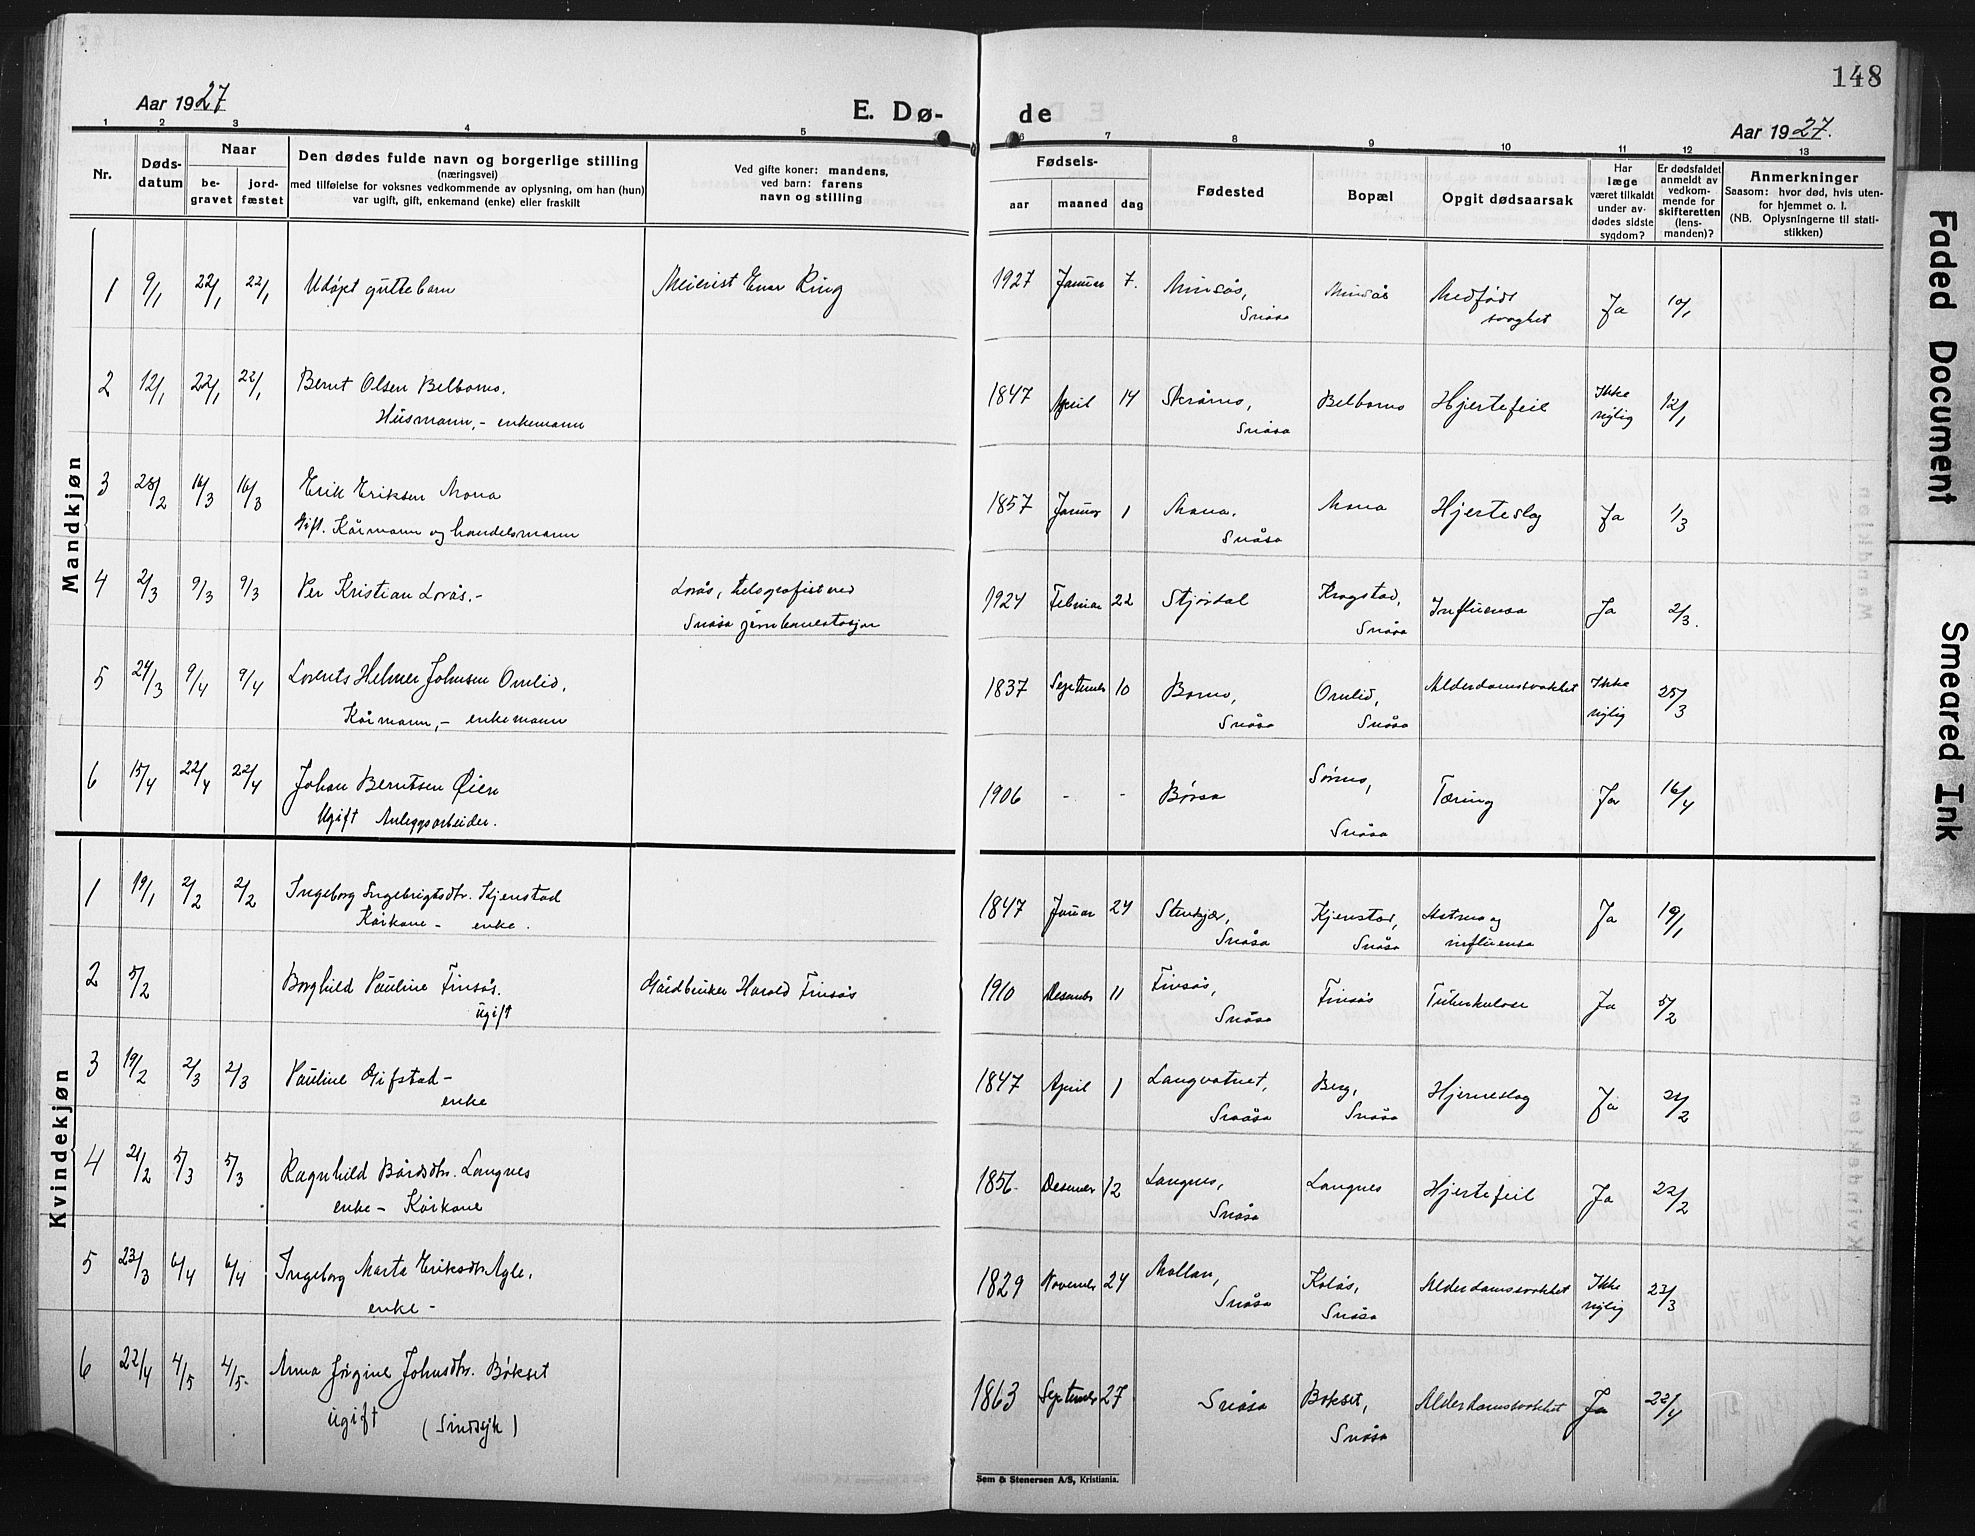 148
Aar 1927
E. Dø-
de
Aar 1927.
1 2 3 4 5
6 7 8 9 10 11 12 13
Nr.
Døds-
datum
Naar
be-
gravet
jord-
fæstet
Den dødes fulde navn og borgerlige stilling
(næringsvei)
med tilføielse for voksnes vedkommende av oplysning, om han (hun)
var ugift, gift, enkemand (enke) eller fraskilt
Ved gifte koner: mandens,
ved barn: farens
navn og stilling
Fødsels-
aar maaned dag
Fødested
Bopæl
Opgit dødsaarsak
Har
læge
været tilkaldt
under av-
dødes sidste
sygdom?
Er dødsfaldet
anmeldt av
vedkom-
mende for
skifteretten
(lens-
manden)?
Anmerkninger
Saasom: hvor død, hvis uten-
for hjemmet o. l.
(NB. Oplysningerne til stati-
stikken)
Mandkjøn
1 9/1 22/1 22/1 Udøpt guttebarn Meierist Enar Ring 1927 Januar 7. Minsås, Minsås Medfødt Ja 10/1
Snåsa svaghet
2 12/1 22/1 22/1 Bernt Olsen Belbomo. 1847 April 14 Skråmo, Belbomo Hjertefeil Ikke 12/1
Husmann, - enkemann Snåsa nylig
3 28/2 16/3 16/3 Erik Eriksen Mona 1857 Januar 1 Mona, Mona Hjerteslag Ja 1/3
Gift. Kårmann og handelsmann Snåsa
4 2/3 9/3 9/3 Per Kristian Lorås.- Lorås, telegrafist ved 1924 Februar 22 Stjørdal Kragstad, Influensa Ja 2/3.
Snåsa jernbanestasjon Snåsa
5 24/3 9/4 9/4 Lorents Helmer Johnsen Omlid, 1837 September 10 Bomo, Omlid, Alderdomssvakhet Ikke 25/3
Kårmann, - enkemann Snåsa Snåsa nylig
6 15/4 22/4 22/4 Johan Berntsen Øien 1906 - - Børsa Sørmo, Tæring Ja 16/4
Ugift Anleggsarbeider. Snåsa
Kvindekjøn
1 19/1 2/2 2/2 Ingeborg Ingebrigtsdtr. Kjenstad 1847 Januar 24 Stenkjær, Kjenstad, Astma og Ja 19/1
Kårkone - enke. Snåsa Snåsa influensa
2 5/2 Borghild Pauline Finsås. Gårdbruker Harald Finsås 1910 Desember 11 Finsås, Finsås Tuberkulose Ja 5/2
ugift Snåsa
3 19/2 2/3 2/3 Pauline Gifstad - 1847 April 1 Langvatnet, Berg, Hjerneslag Ja 21/2
enke Snåsa Snåsa
4 21/2 5/3 5/3 Ragnhild Bårdsdtr. Langnes 1856. Desember 12 Langnes, Langnes Hjertefeil Ja 22/2
enke - Kårkone Snåsa
5 23/3 6/4 6/4 Ingeborg Marta Eriksdtr. Agle, 1829 November 24 Mollan, Kolås, Alderdomssvakhet Ikke 23/3
enke - Snåsa Snåsa nylig
6 22/4 4/5 4/5- Anna Jørgine Johnsdtr. Bökset 1863 September 27 Snåsa Bökset, Alderdomssvakhet Ja 22/4
ugift (Sindsyk) Snåsa
Sem & Stenersen A/S, Kristiania.
Faded Document
Smeared Ink